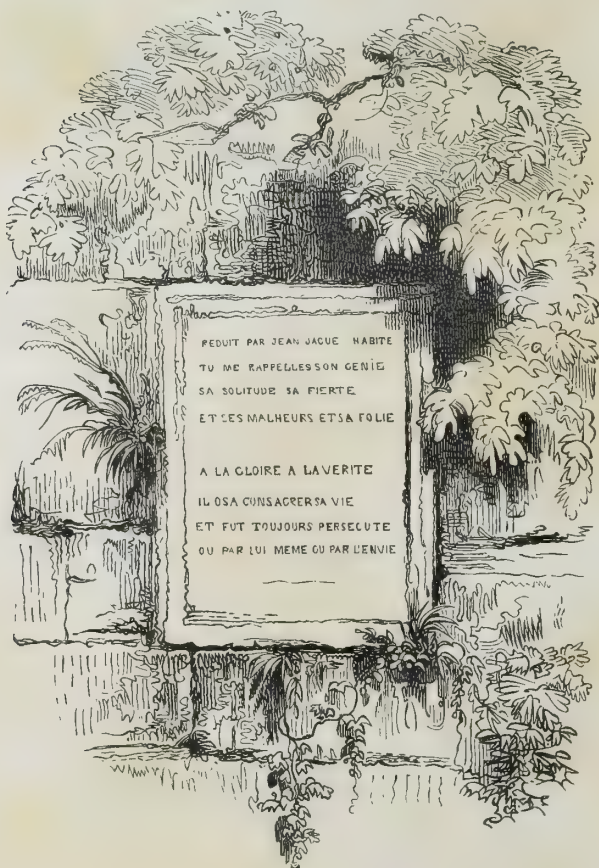 REDUIT PAR JEAN JAQUE HABITE
TU ME RAPPELLES SON GENIE
SA SOLITUDE SA FIERTE
ET SES MALHEURS ET SA FOLIE
A LA GLOIRE A LA VERITE
IL OSA CONSACRER SA VIE
ET FUT TOUJOURS PERSECUTE
OU PAR LUI MEME OU PAR L'ENVIE